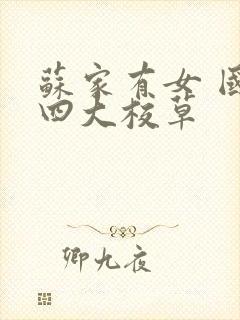 蘇家有女 國
四大校草
卿九夜